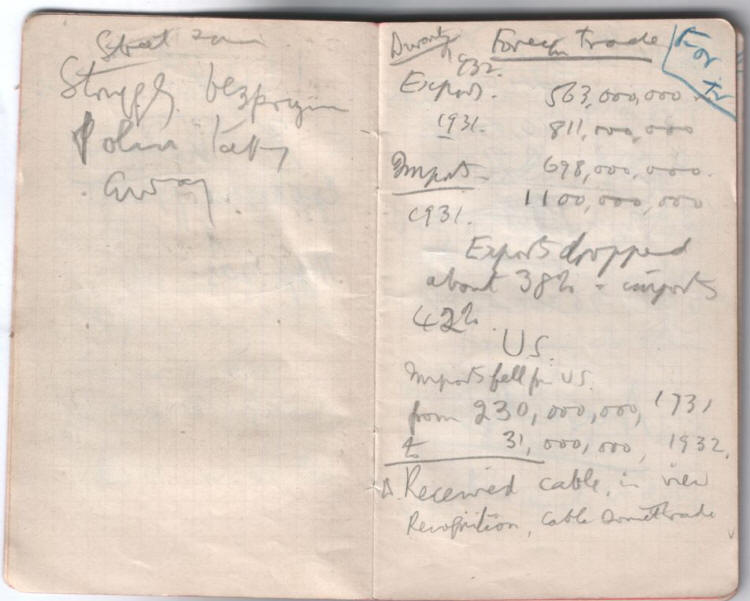 Street
Struggle bezprizorni
Police take
away.
Duranty Foreign trade
For
Tr
1932.
Export. 563,000,000
1931. 811,000,000
Import. 698,000,000.
1931. 1100,000,000
Exports dropped
about 38% - imports
42%.
US.
Imports fell fr US.
from 230,000,000, 1931
to 31,000,000, 1932.
D. Received cable, in view
Recognition, cable Soviet trade